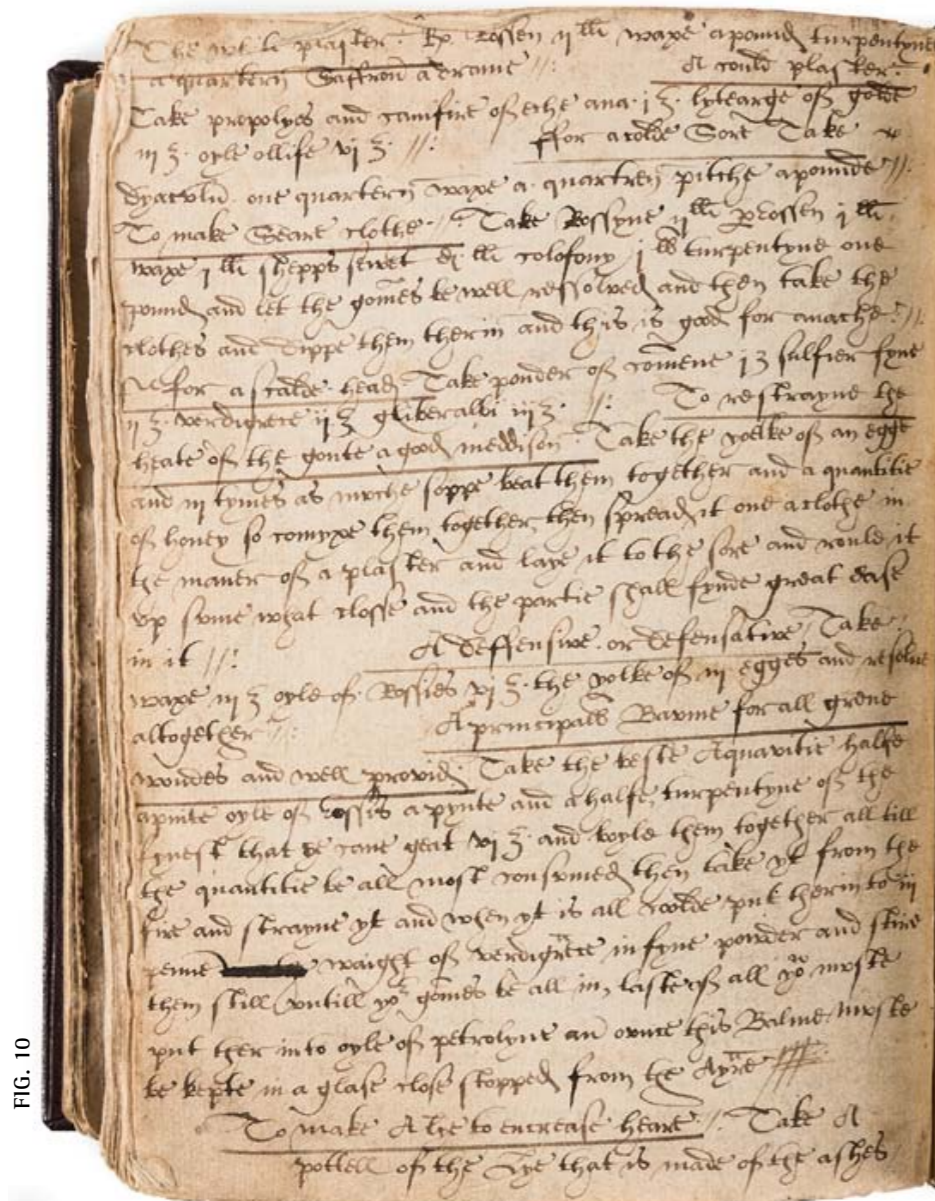 The wt li plaister. Rx. Rossen ii lli waxe a pound turpentyne
a quartern Saffron a drame //: A could plaster.
Take propolyos and camfire of eche ana. i ʒ. lytearge of golde
iii ʒ. oyle ollife vi ʒ. //: ffor a colde Sore Take
dyaculu one quartern waxe a quartren pitche a pounde //:
To make Seare clothe // Take Rossyne ii lli perrossen i lli
waxe i lli shepps sewet di lli colofony i lb turpentyne one
pound and let the gomes be well ressolved and then take the
clothes and dippe them therin and this is good for anache //:
for a scalde head Take pouder of comene i ʒ sulfier fyne
ii ʒ. verdigrece ii ʒ gliberalbi iii ʒ. //: To restrayne the
heate of the goute a good meddison Take the yolke of an egge
and iii tymes as muche soppe beat them together and a quantitie
of honey so comyxe them together then spread it one a clothe in
the maner of a plaster and laye it to the sore and rould it
up some what closse and the partie shall fynde great ease
in it //: A deffensive or defensative Take
waxe iii ʒ oyle of Rossies vi ʒ. the yolke of iii egges and resolve
altogether //: A principall Baume for all grene
woundes and well provid Take the beste Aquavitie halfe
a pinte oyle of Rossis a pynte and a halfe, turpentyne of the
fynest that be cane geat vi ʒ and boyle them together all till
the quantitie be all most consumed then take yt from the
fire and strayne yt and when yt is all coolde put therin to iii
penne waight of verdigrece in fyne pouder and stire
them still untill yor gomes be all in, laste of all yo muste
put ther into oyle of petrolyne an ounce this Balme muste
be kepte in a glase close stopped from the Ayre
To make A lie to encrease heare // Take A
pottell of the Lye that is made of the ashes
FIG. 10